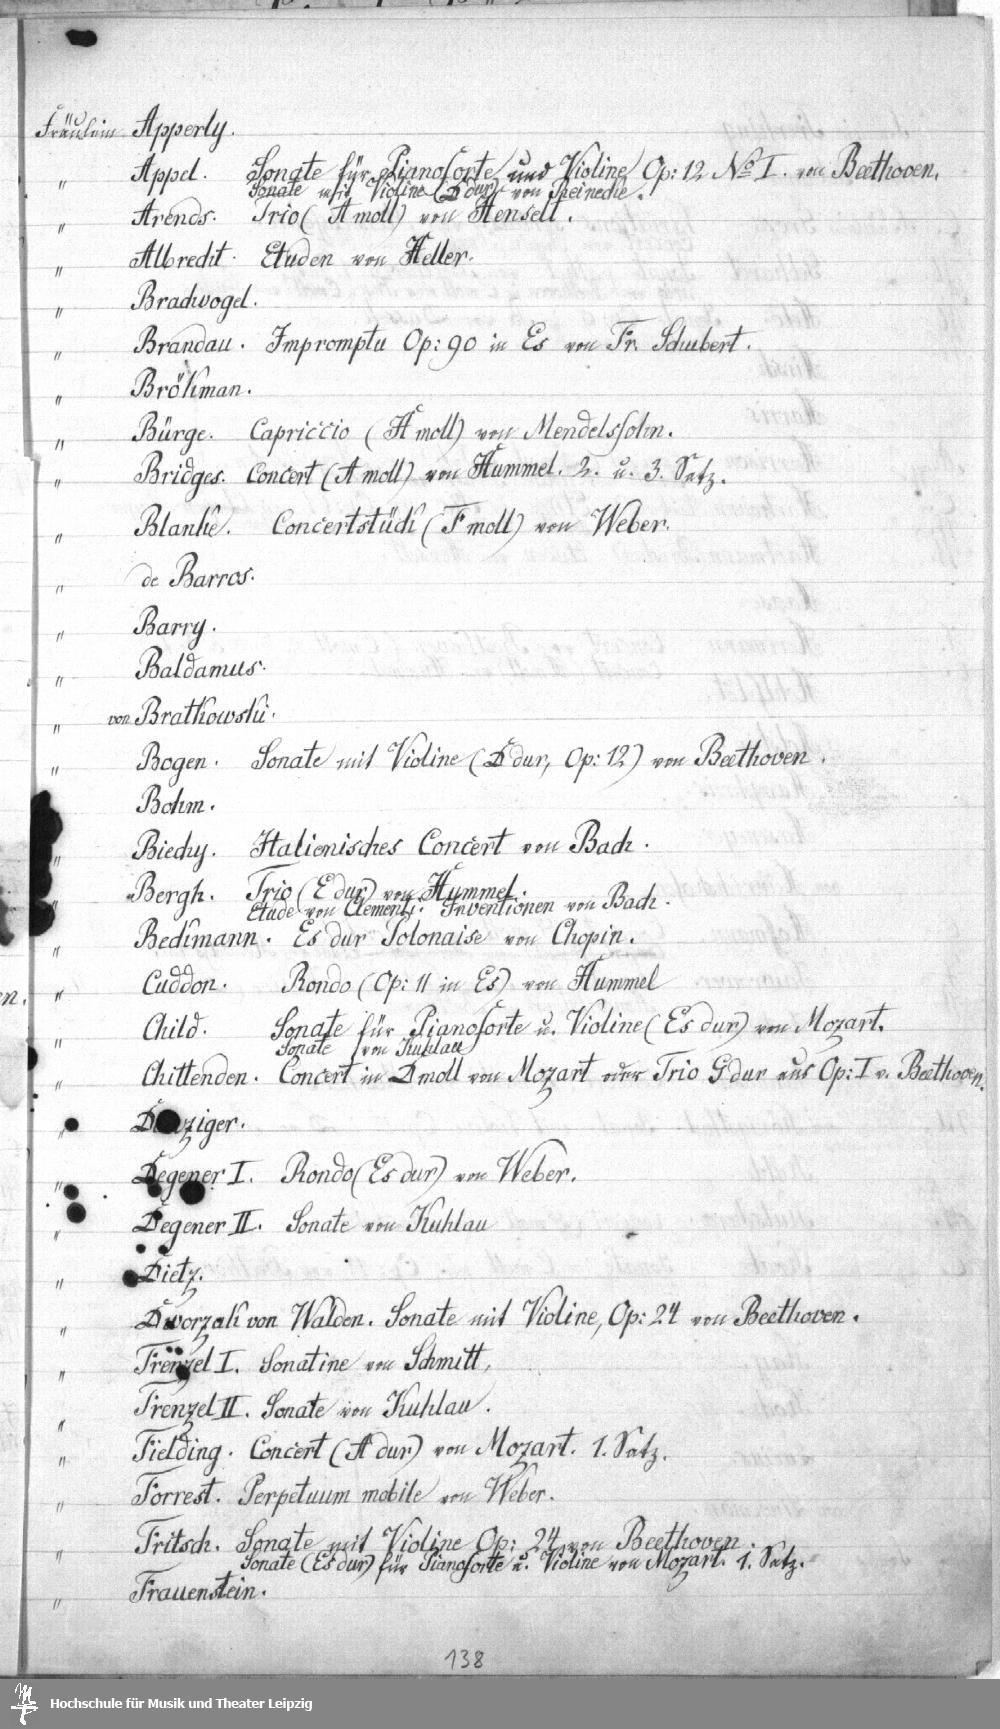 Fräulein Apperly.
" Appel. Sonate für Pianoforte und Violine Op: 12 No I. von Beethoven.
Sonate mit Violine (D dur) von Reinecke.
" Arends. Trio (A moll) von Hensell.
" Albrecht. Etuden von Heller.
" Brachvogel.
" Brandau. Impromptu Op: 90 in Es von Fr. Schubert.
" Brökman.
" Bürge. Capriccio (H moll) von Mendelssohn.
" Bridges. Concert (A moll) von Hummel. 2. u. 3. Satz.
" Blanke. Concertstück (F moll) von Weber.
" de Barros.
" Barry.
" Baldamus.
" von Bratkowski.
" Bogen. Sonate mit Violine (D dur, Op: 12) von Beethoven.
Bohm.
" Biechy. Italienisches Concert von Bach.
" Bergh. Trio (E dur) von Hummel.
Etude von Clementi. Inventionen von Bach.
" Beckmann. Es dur Polonaise von Chopin.
" Cuddon. Rondo (Op: 11 in Es) von Hummel
" Child. Sonate für Pianoforte u. Violine (Es dur) von Mozart.
Sonate von Kuhlau
" Chittenden. Concert in D moll von Mozart oder Trio G dur aus Op: I v. Beethoven.
" Danziger.
" Degener I. Rondo (Es dur) von Weber.
" Degener II. Sonate von Kuhlau
" Dietz.
" Dworzak von Walden. Sonate mit Violine, Op: 24 von Beethoven.
" Frenzel I. Sonatine von Schmitt.
" Frenzel II. Sonate von Kuhlau.
" Fielding. Concert (A dur) von Mozart. 1. Satz.
" Forrest. Perpetuum mobile von Weber.
" Fritsch. Sonate mit Violine Op: 24 von Beethoven.
Sonate (Es dur) für Pianoforte u. Violine von Mozart. 1. Satz.
" Frauenstein.
138
Hochschule für Musik und Theater Leipzig